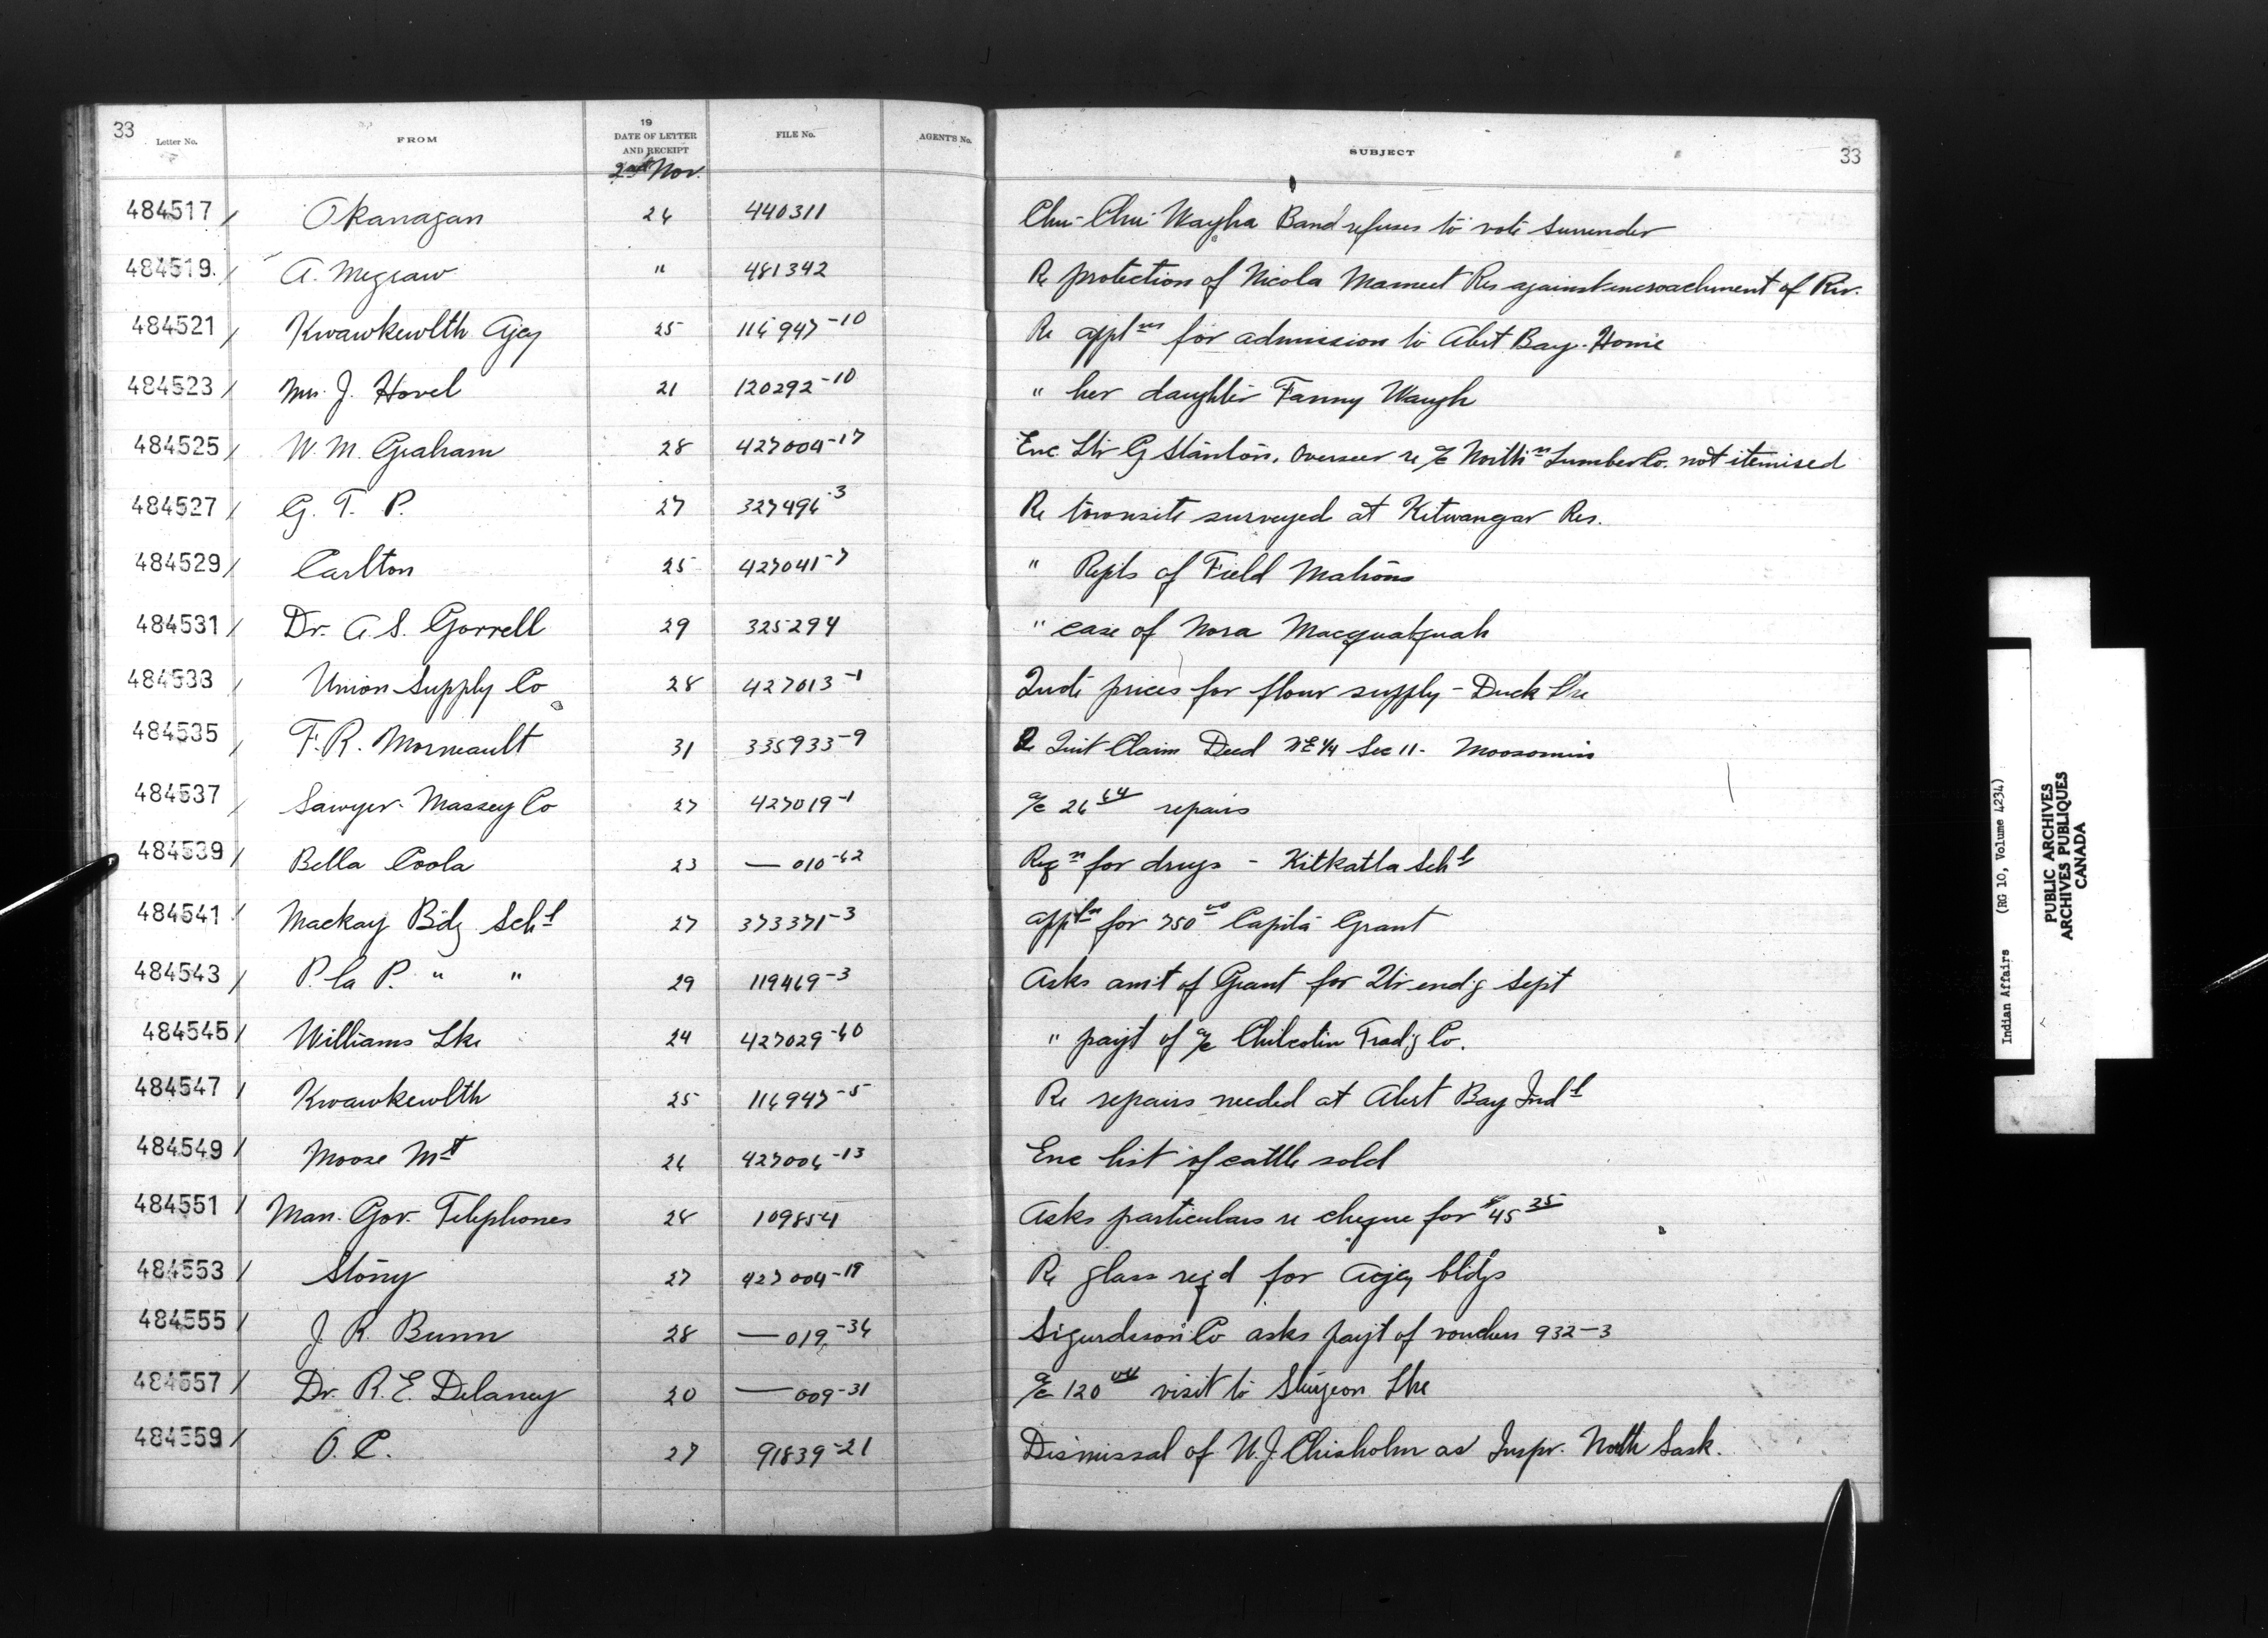 33 Letter No. FROM 19 DATE OF LETTER AND RECEIPT FILE No. AGENT'S No. SUBJECT 33
2nd Nov.
484517 / Okanagan 26 440311 Chu-Chu Wayha Band refuses to vote surrender
484519 / A. Megraw " 481342 Re protection of Nicola Mameet Res against encroachment of Riv.
484521 / Kwawkewlth Agcy 25 116947-10 Re applns for admission to Alert Bay Home
484523 / Mrs. J. Hovel 21 120292-10 " her daughter Fanny Waugh
484525 / W. M. Graham 28 427004-17 Enc Ltr G Stanton, Overseer re a/c Northn Lumber Co. not itemised
484527 / G. T. P. 27 327496-3 Re townsite surveyed at Kitwangar Res.
484529 / Carlton 25 427041-7 " Repts of Field Matrons
484531 / Dr. A. S. Gorrell 29 325294 " case of Nora Macquatquah
484533 / Union Supply Co 28 427013-1 Quote prices for flour supply - Duck Lke
484535 / F. R. Morneault 31 335933-9 Re Quit Claim Deed NE 1/4 Sec 11 - Moosomin
484537 / Sawyer-Massey Co 27 427019-1 a/c 26 64 repairs
484539 / Bella Coola 23 — 010-62 Reqn for drugs - Kitkatla Schl
484541 / Mackay Bdg Schl 27 373371-3 Appln for 750 00 Capita Grant
484543 / P. la P. " " 29 119469-3 Asks amt of Grant for Qtr end'g Sept
484545 / Williams Lke 24 427029-60 " payt of a/c Chilcotin Trad'g Co.
484547 / Kwawkewlth 25 116947-5 Re repairs needed at Alert Bay Indl
484549 / Moose Mt 26 427006-13 Enc list of cattle sold
484551 / Man. Gov. Telephones 28 109854 Asks particulars re cheque for $45 35
484553 / Stony 27 427004-19 Re glass reqd for Agcy bldgs
484555 / J. R. Bunn 28 — 019-36 Sigurdsson Co asks payt of vouchers 932-3
484557 / Dr. R. E. Delaney 20 — 009-31 a/c 120 visit to Sturgeon Lke
484559 / O. C. 27 91839-21 Dismissal of W. J. Chisholm as Inspr. North Sask.
Indian Affairs (RG 10, Volume 4234)
PUBLIC ARCHIVES
ARCHIVES PUBLIQUES
CANADA